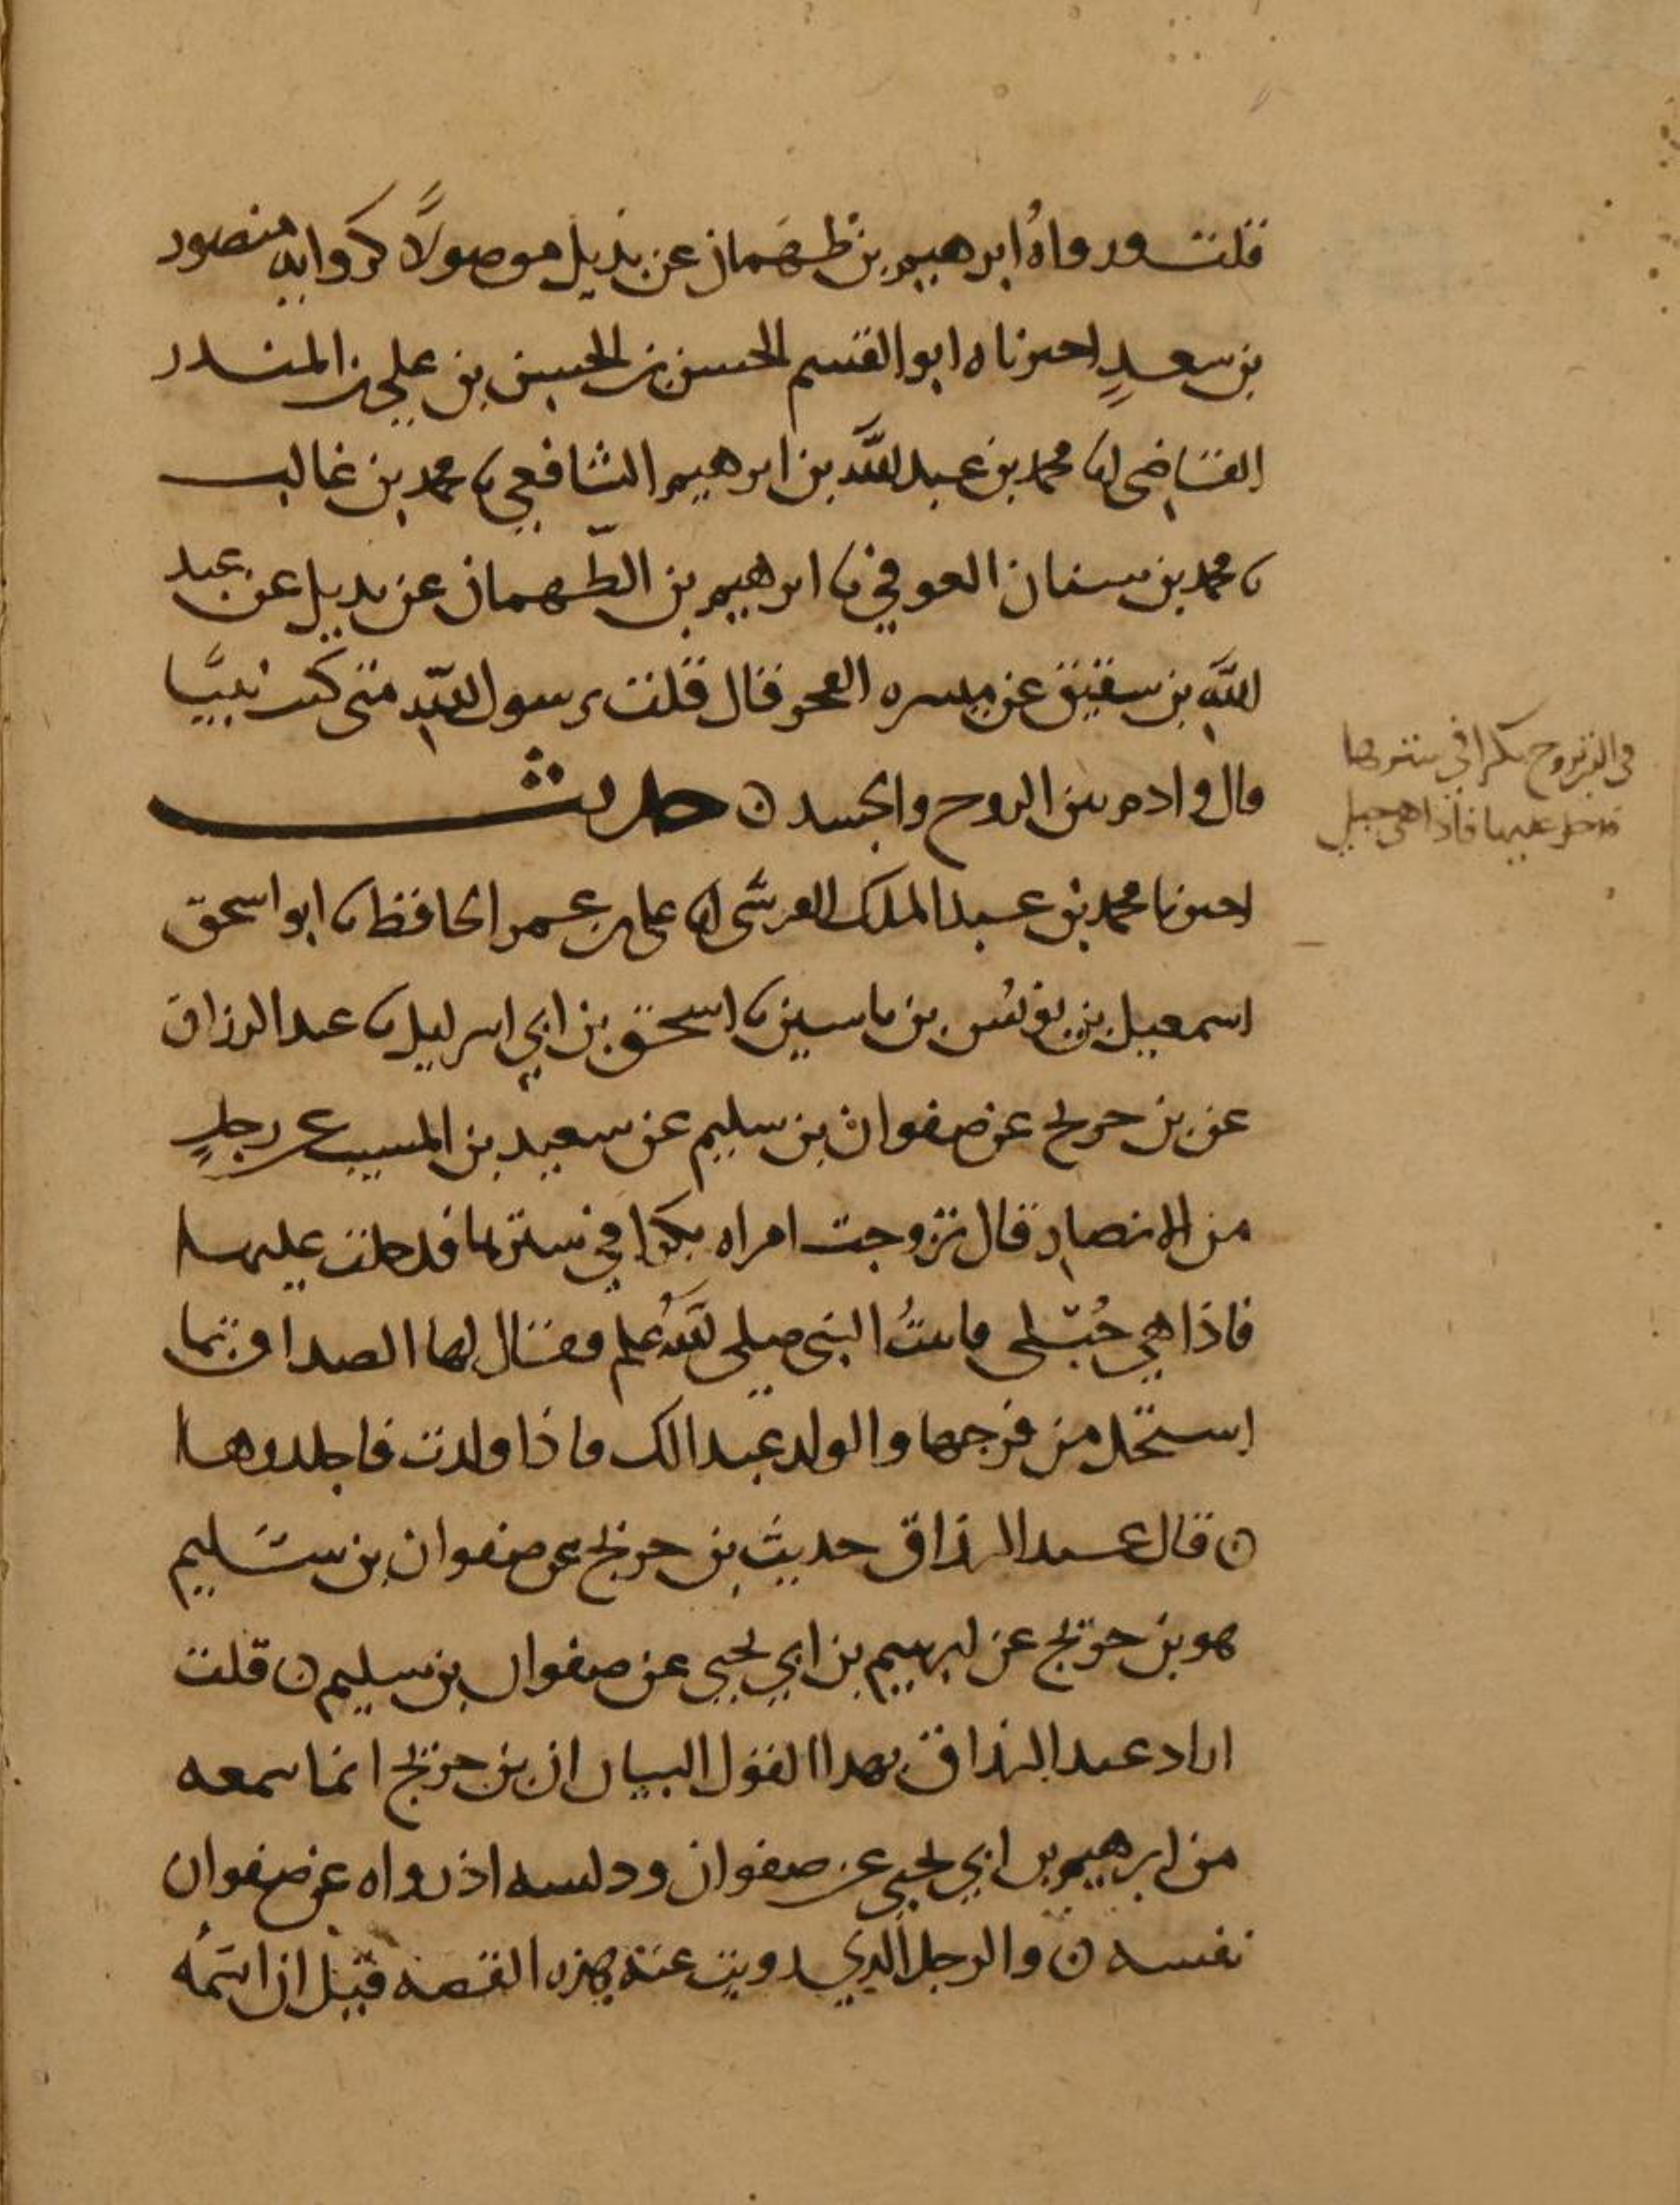 قلت ورواه ابرهيم بن طهمان عن بديل موصولاً كرواية منصور
بن سعدٍ اخبرناه ابو القسم الحسن بن الحسين بن علي بن المنذر
القاضي انا محمد بن عبد الله بن ابرهيم الشافعي نا محمد بن غالب
نا محمد بن سنان العوقي نا ابرهيم بن الطهمان عن بديل عن عبد
الله بن شقيق عن ميسره الفجر قال قلت يرسول الله متى كنت نبيًا
قال وادم بين الروح والجسد ن حديث
اخبرنا محمد بن عبد الملك القرشى انا على بن عمر الحافظ نا ابو اسحق
اسمعيل بن يونس بن ياسين نا اسحق بن ابي اسرايل نا عبد الرزاق
عن بن جريج عن صفوان بن سليم عن سعيد بن المسيب عن رجلٍ
من الانصار قال تزوجت امراه بكرا في سترها فدخلت عليها
فاذا هي حُبلى فاتيتُ النبى صلى الله علم فقال لها الصداق بما
استحل من فرجها والولد عبد الك فاذا ولدت فاجلدوها
ن قال عبد الرزاق حديث بن جريج عن صفوان بن سليم
هو بن جريج عن ابرهيم بن ابي يحيى عن صفوان بن سليم ن قلت
اراد عبد الرزاق بهدا القول البيان ان بن جريج انما سمعه
من ابرهيم بن ابي يحيى عن صفوان ودلسه اذ رواه عن صفوان
نفسه ن والرجل الذي رويت عنه هذه القصة قيل ان اسمُه
في التزوج بكرا في سترها
فدخل عليها فاذا هي حبلى